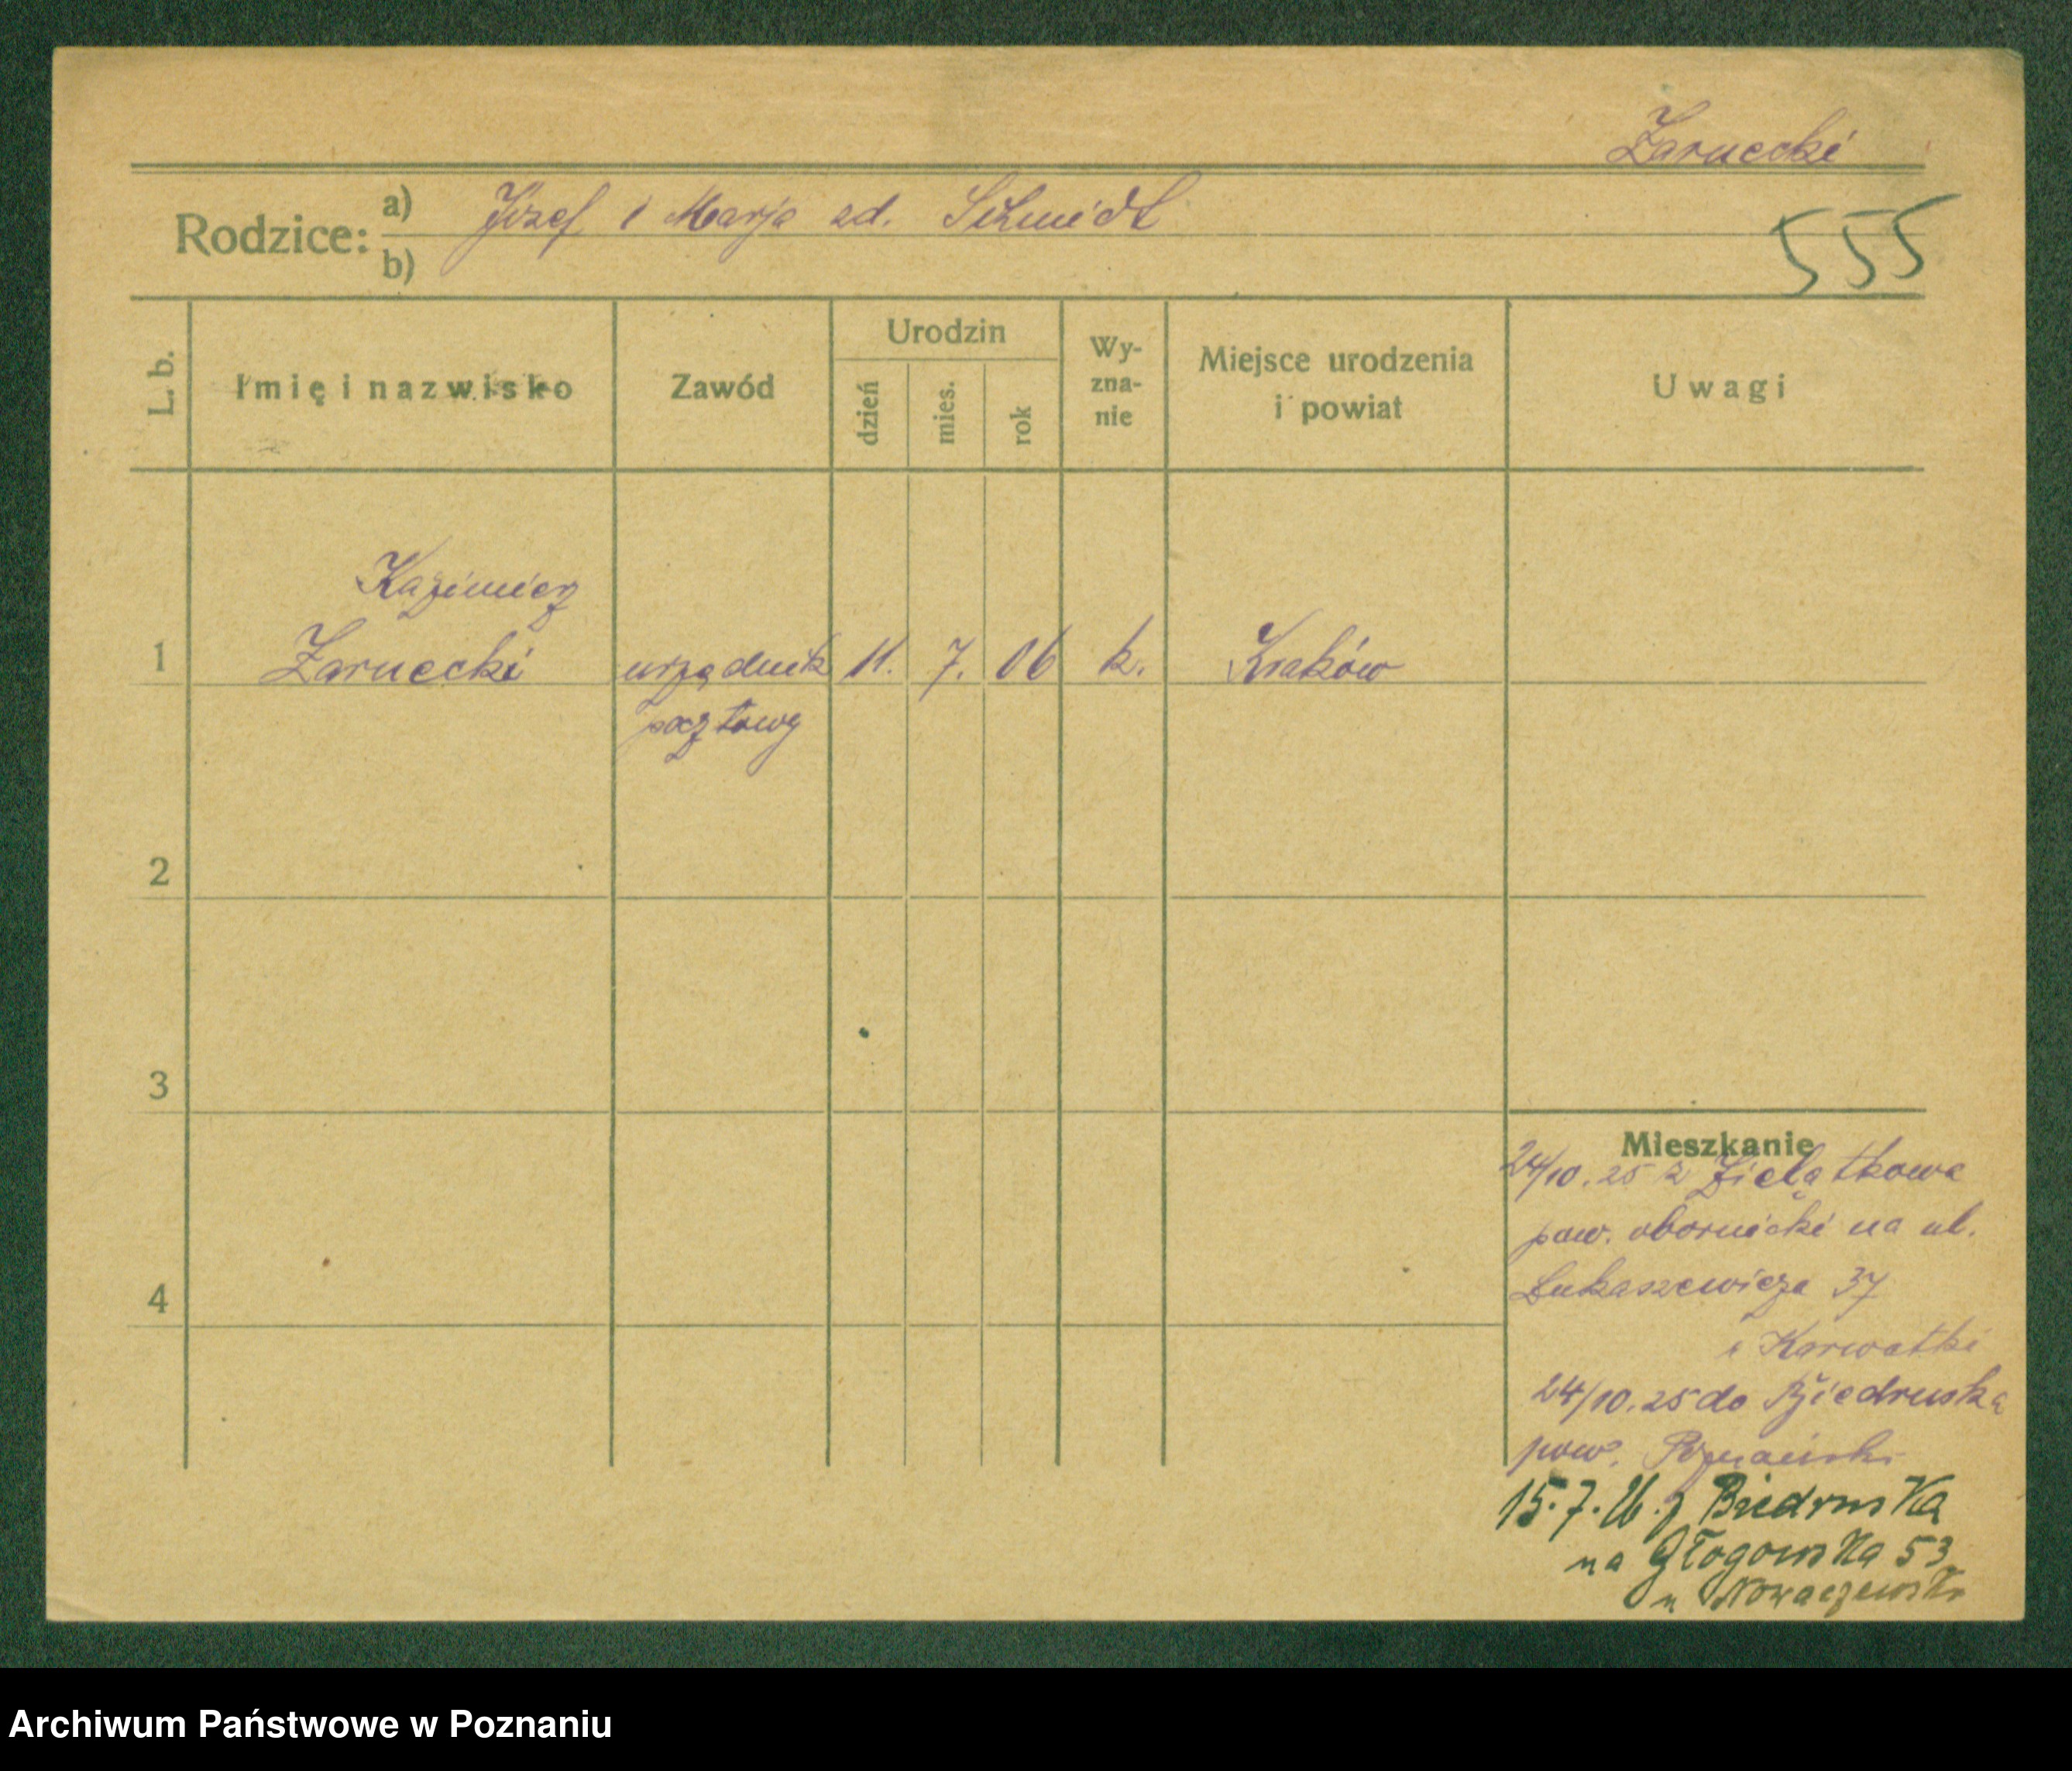 Żarnecki
Rodzice: a) Józef i Marja zd. Schmidt
b)
555
L. b.
Imię i nazwisko
Zawód
Urodzin
dzień
mies.
rok
Wy-
zna-
nie
Miejsce urodzenia
i powiat
Uwagi
Kazimierz
1 Żarnecki urzędnik 11. 7. 06 k. Kraków
pocztowy
2
3
4
Mieszkanie
24/10. 25 z Zielątkowa
pow. obornicki na ul.
Łukaszewicza 37
Karwatki
24/10. 25 do Biedruska
pow. Poznański
15. 7. 26. z Biedruska
na Głogowska 53
u Nowaczewski
Archiwum Państwowe w Poznaniu